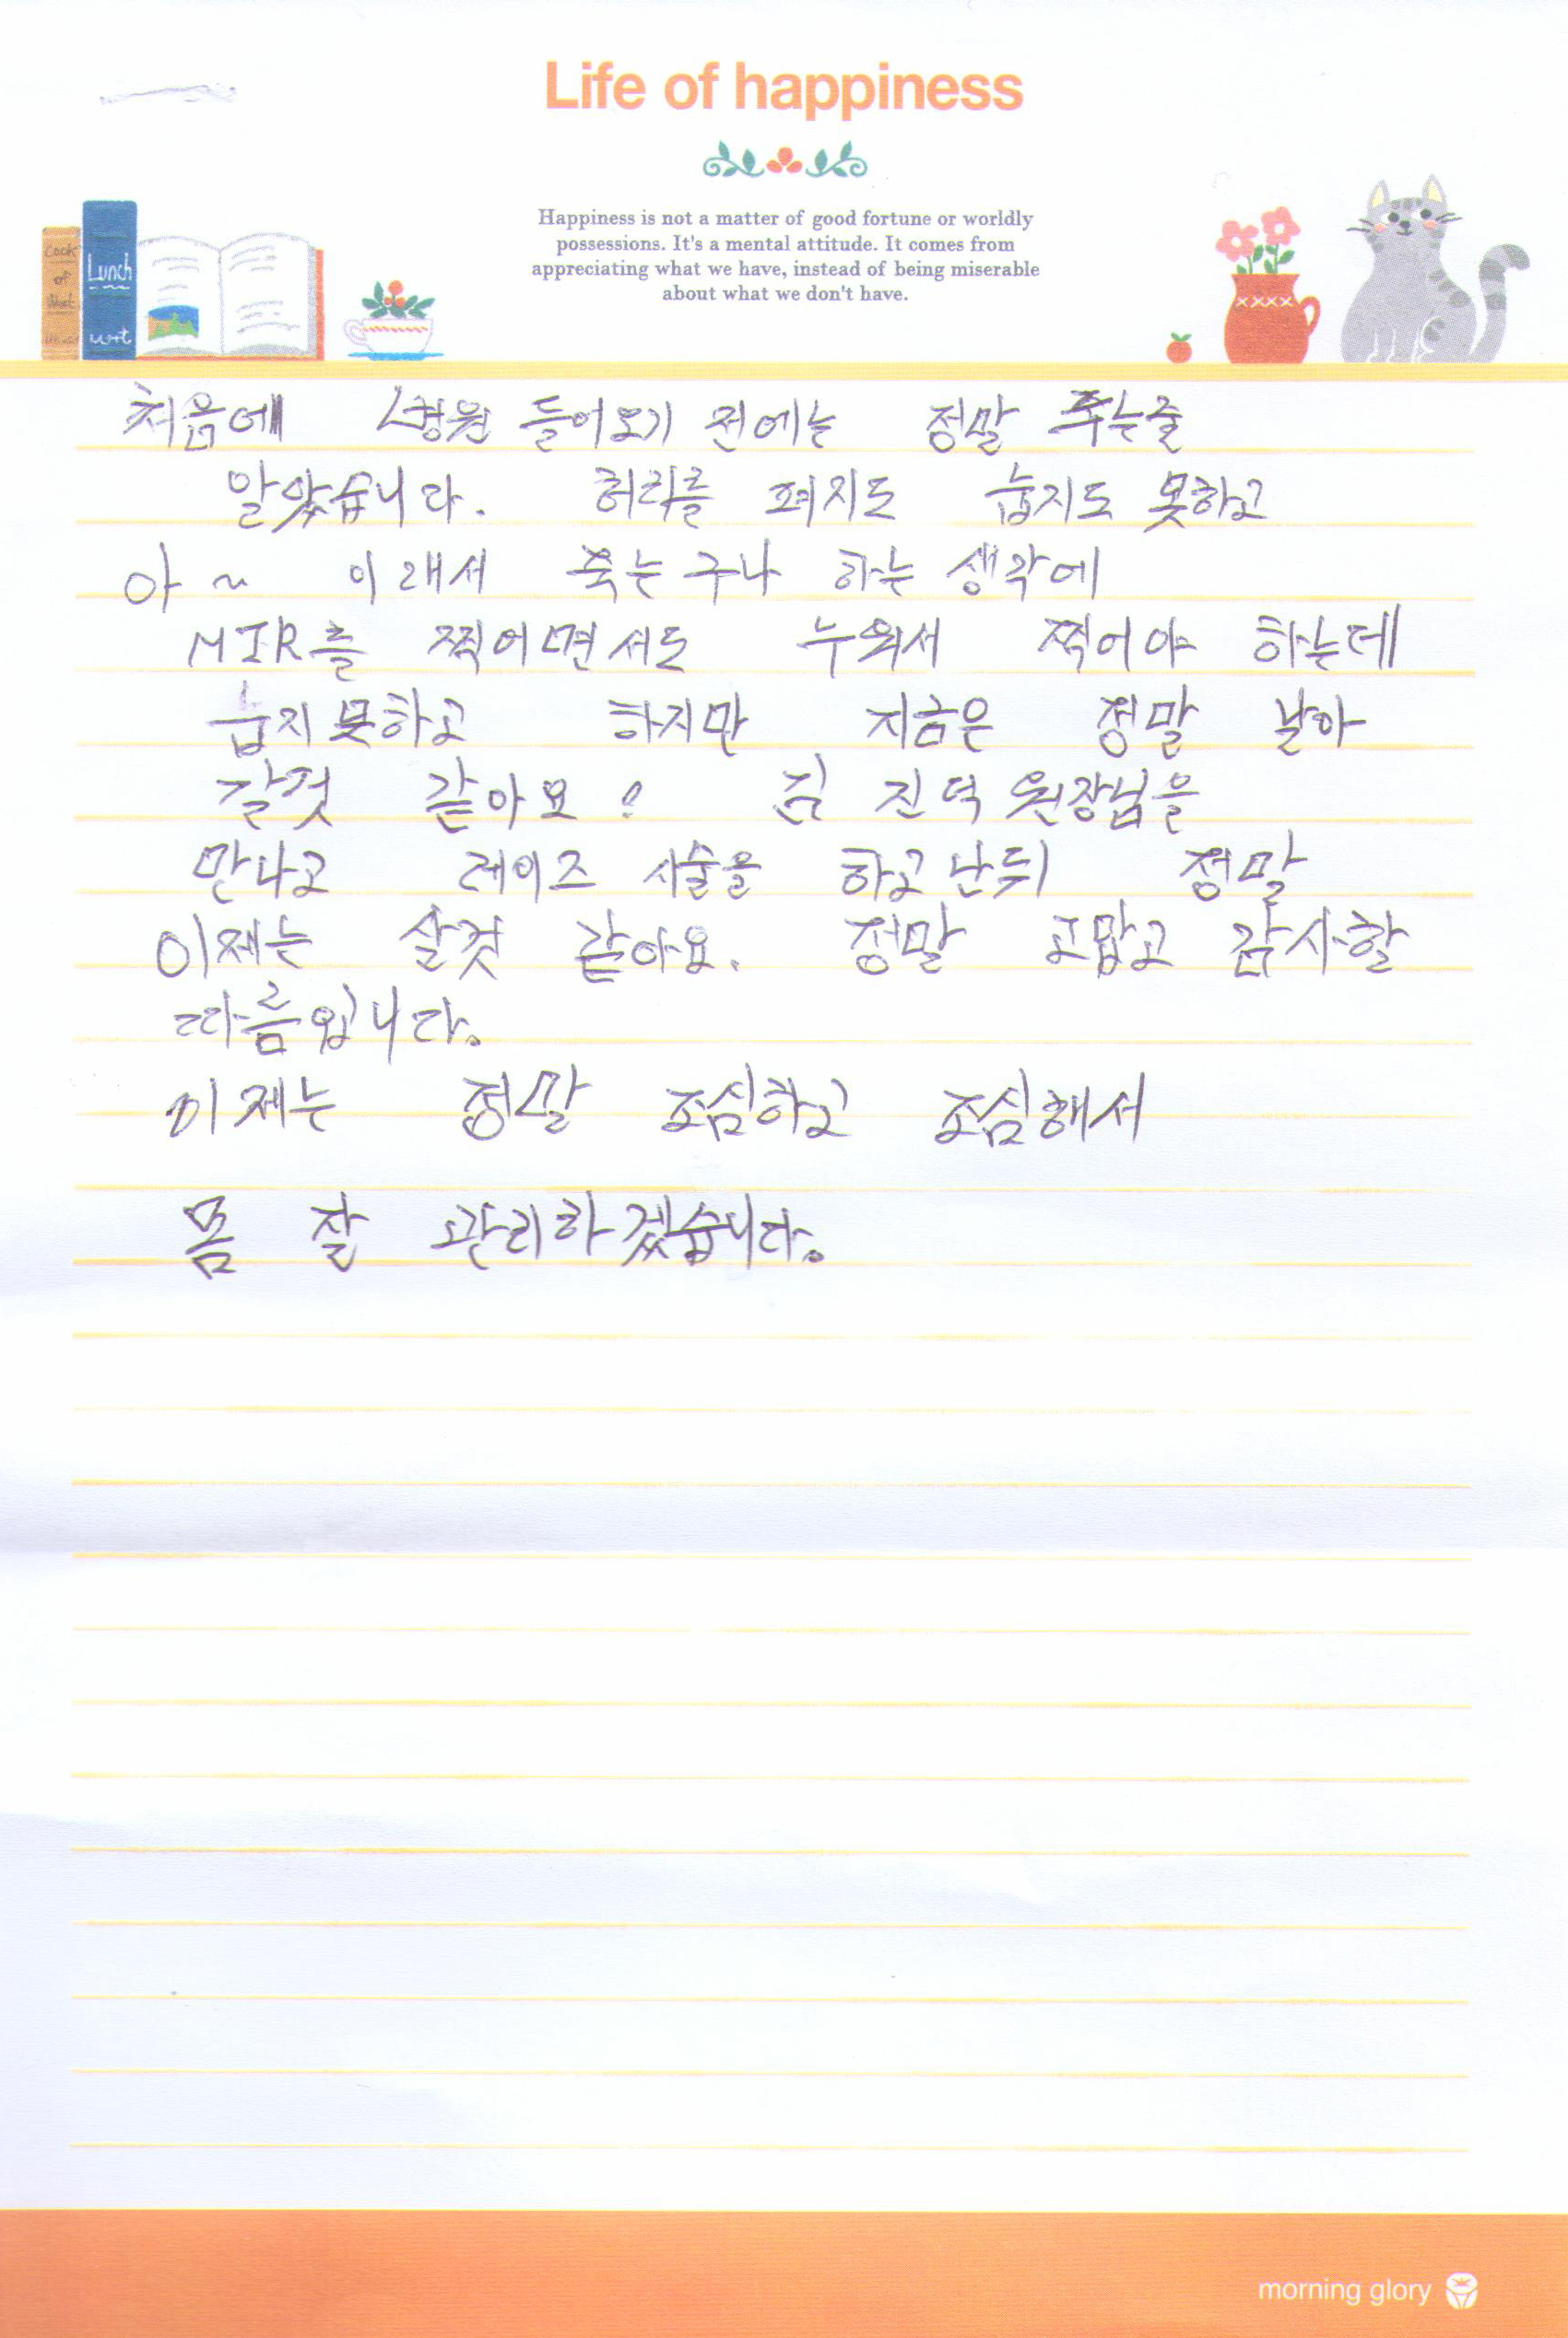 Life of happiness
Happiness is not a matter of good fortune or worldly
possessions. It's a mental attitude. It comes from
appreciating what we have, instead of being miserable
about what we don't have.
Cook
of
Lunch
처음에 병원 들어오기 전에는 정말 죽는줄
알았습니다. 허리를 펴지도 눕지도 못하고
아 ~ 이래서 죽는구나 하는 생각에
MIR를 찍어면서도 누워서 찍어야 하는데
눕지못하고 하지만 지금은 정말 날아
갈것 같아요! 김 진덕 원장님을
만나고 레이즈 시술을 하고난뒤 정말
이제는 살것 같아요. 정말 고맙고 감사할
따름입니다.
이제는 정말 조심하고 조심해서
몸 잘 관리하겠습니다.
morning glory